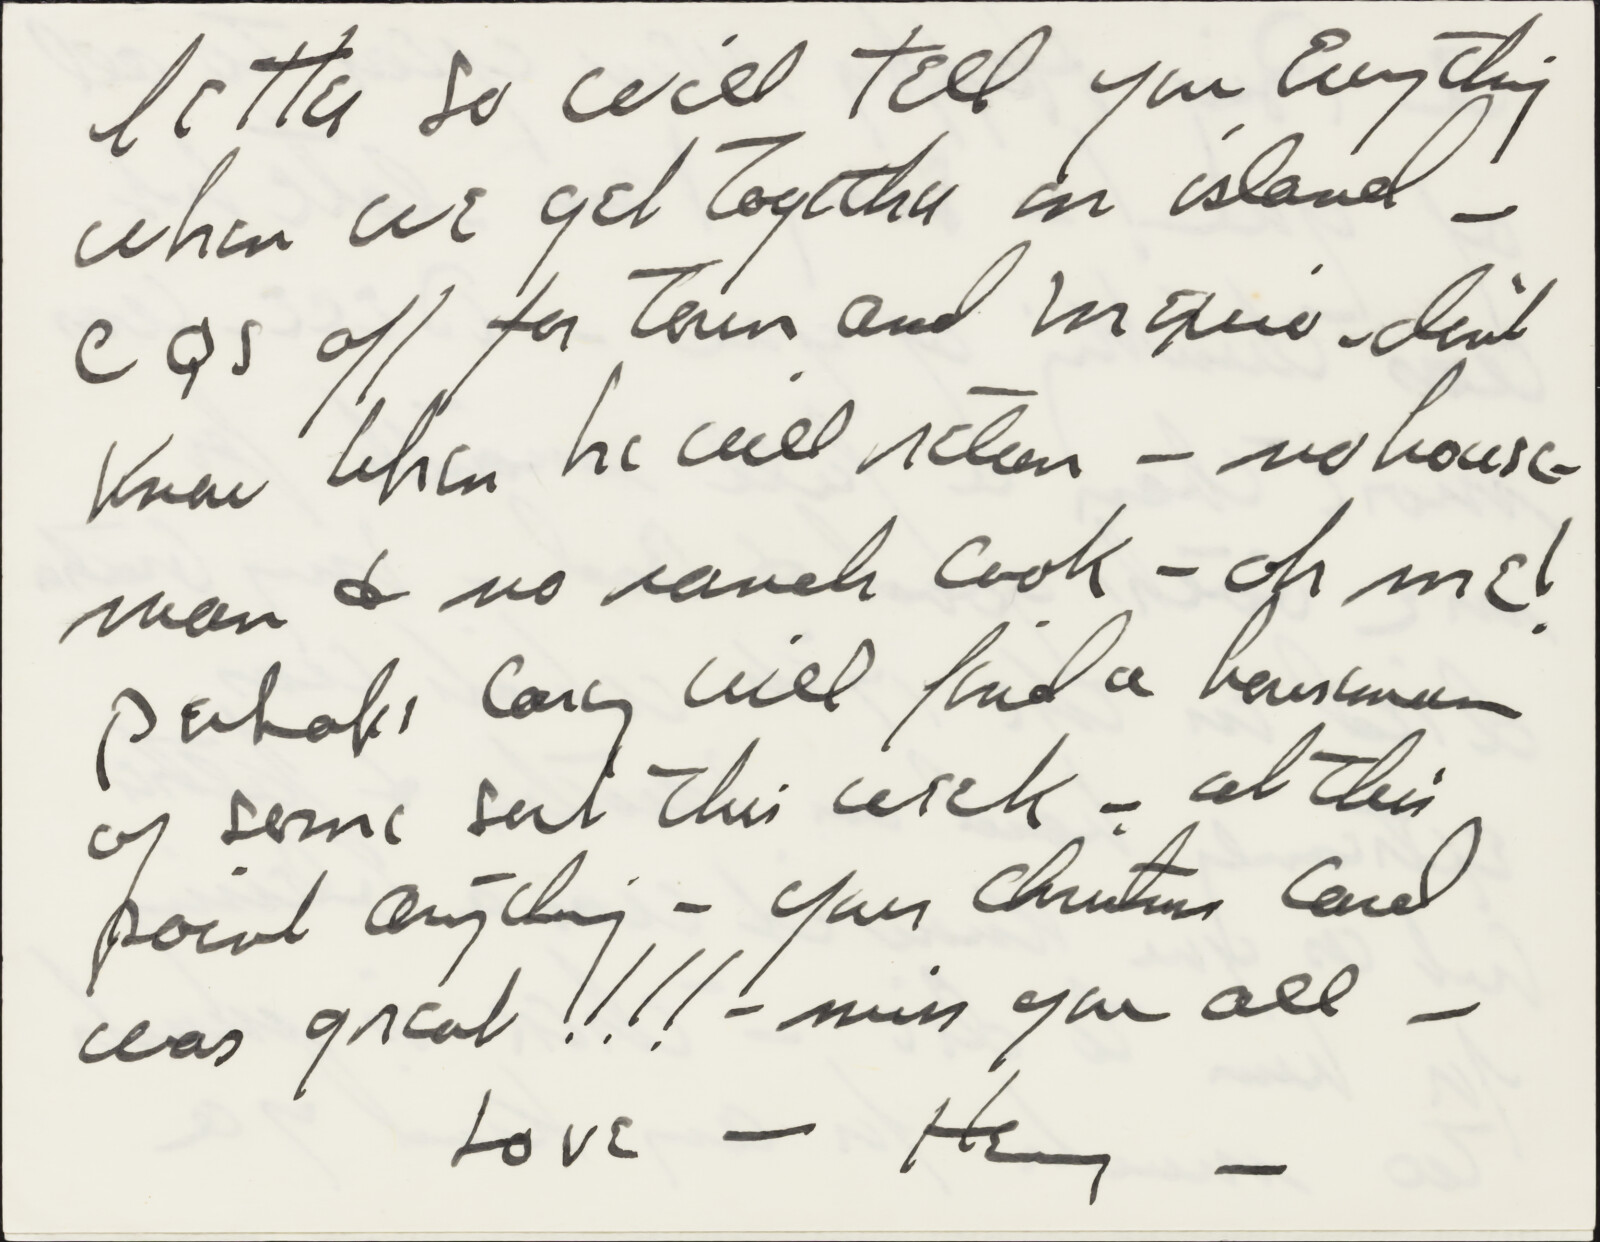 letter so will tell you Everything
when we get together on island –
CQS off for town and Mexico – don't
Know when he will return – no house-
man & no ranch cook – oh me!
perhaps Carey will find a houseman
of some sort this week – at this
point anything – your Christmas card
was great !!!! – miss you all –
Love – Henry –